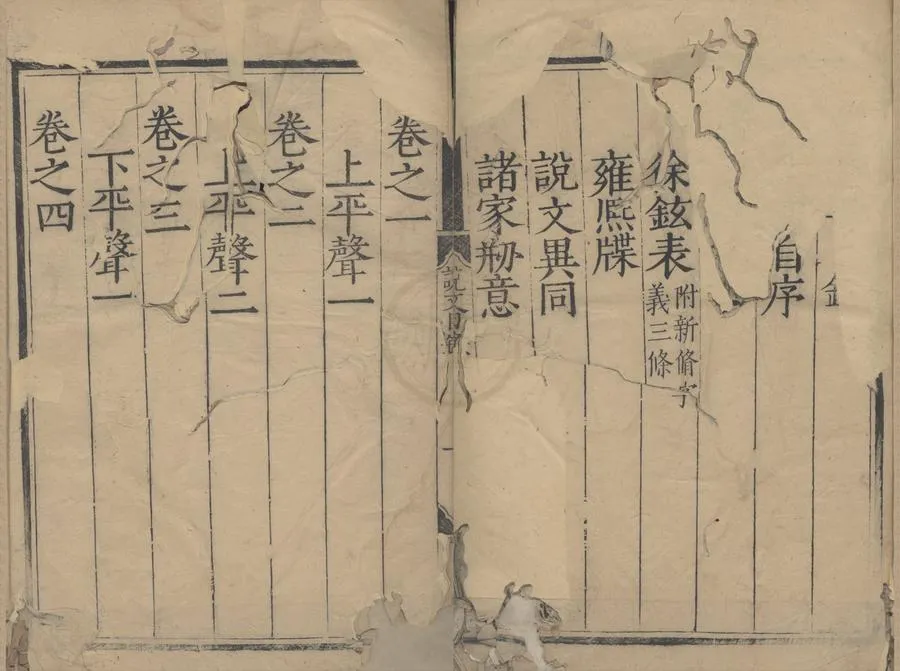 自序
徐鉉表 附新脩字義三條
雍熙牒
說文異同
諸家刱意
卷之一
上平聲一
卷之二
上平聲二
卷之三
下平聲一
卷之四